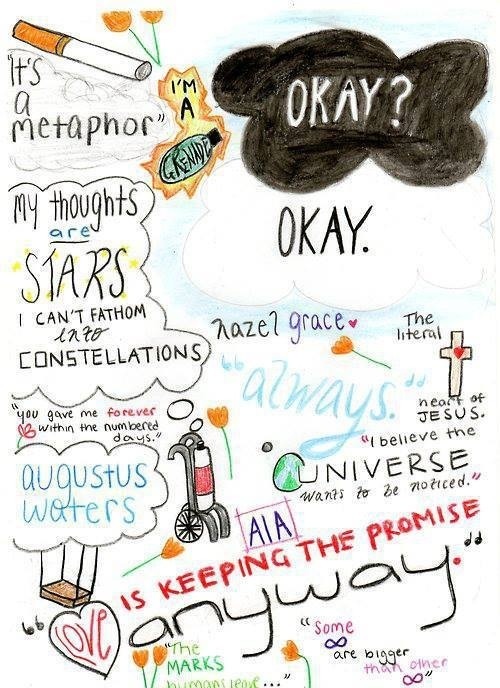 "It's
a
metaphor"
I'M
A
GRENADE
OKAY?
OKAY.
my thoughts
are
STARS
I CAN'T FATHOM
into
CONSTELLATIONS
hazel grace
"always."
The
literal
heart of
JESUS.
"you gave me forever
within the numbered
days."
augustus
waters
"I believe the
UNIVERSE
wants to be noticed."
AIA
"LOVE IS KEEPING THE PROMISE
anyway."
"The
MARKS
humans leave..."
"Some
∞
are bigger
than other
∞"